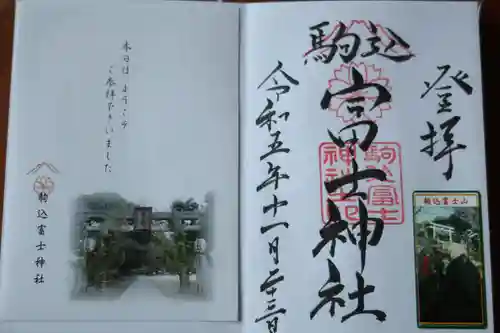 登拝
駒込
富士神社
令和五年十一月二十三日
駒込富士神社印
駒込富士山
本日は ようこそ
ご参拝下さいました
駒込富士神社